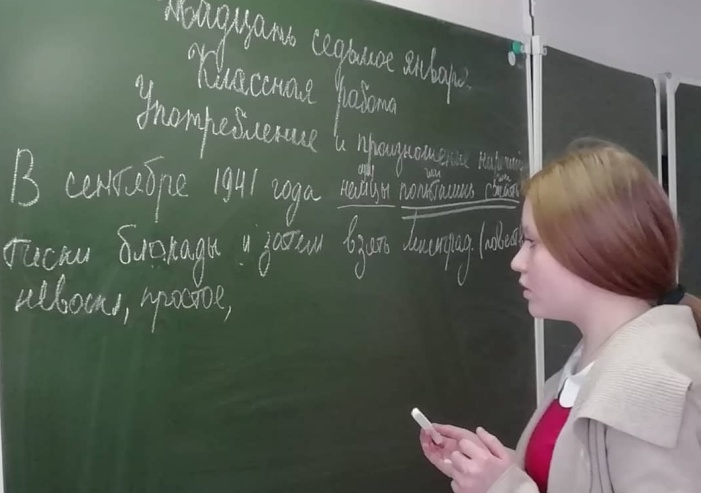 Двадцать седьмое января.
Классная работа
Употребление и произношение наречий
В сентябре 1941 года немцы попытались сжать
тиски блокады и затем взять Ленинград. (повест
невоскл, простое,